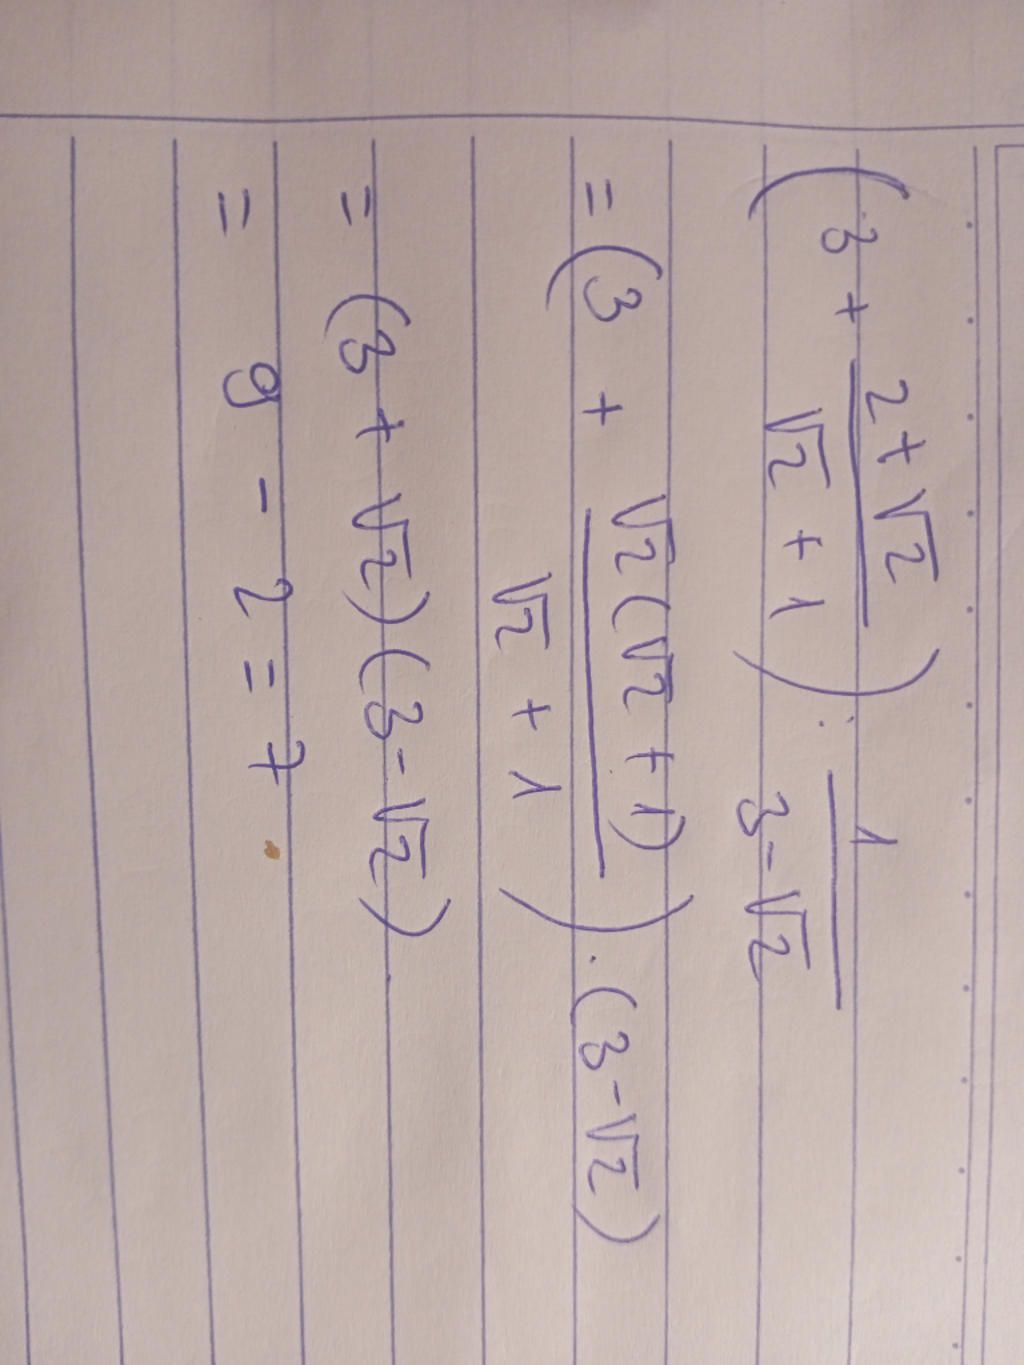 (3 + (2 + √2)/(√2 + 1)) : 1/(3 - √2)
= (3 + √2(√2 + 1)/(√2 + 1)) . (3 - √2)
= (3 + √2)(3 - √2)
= 9 - 2 = 7